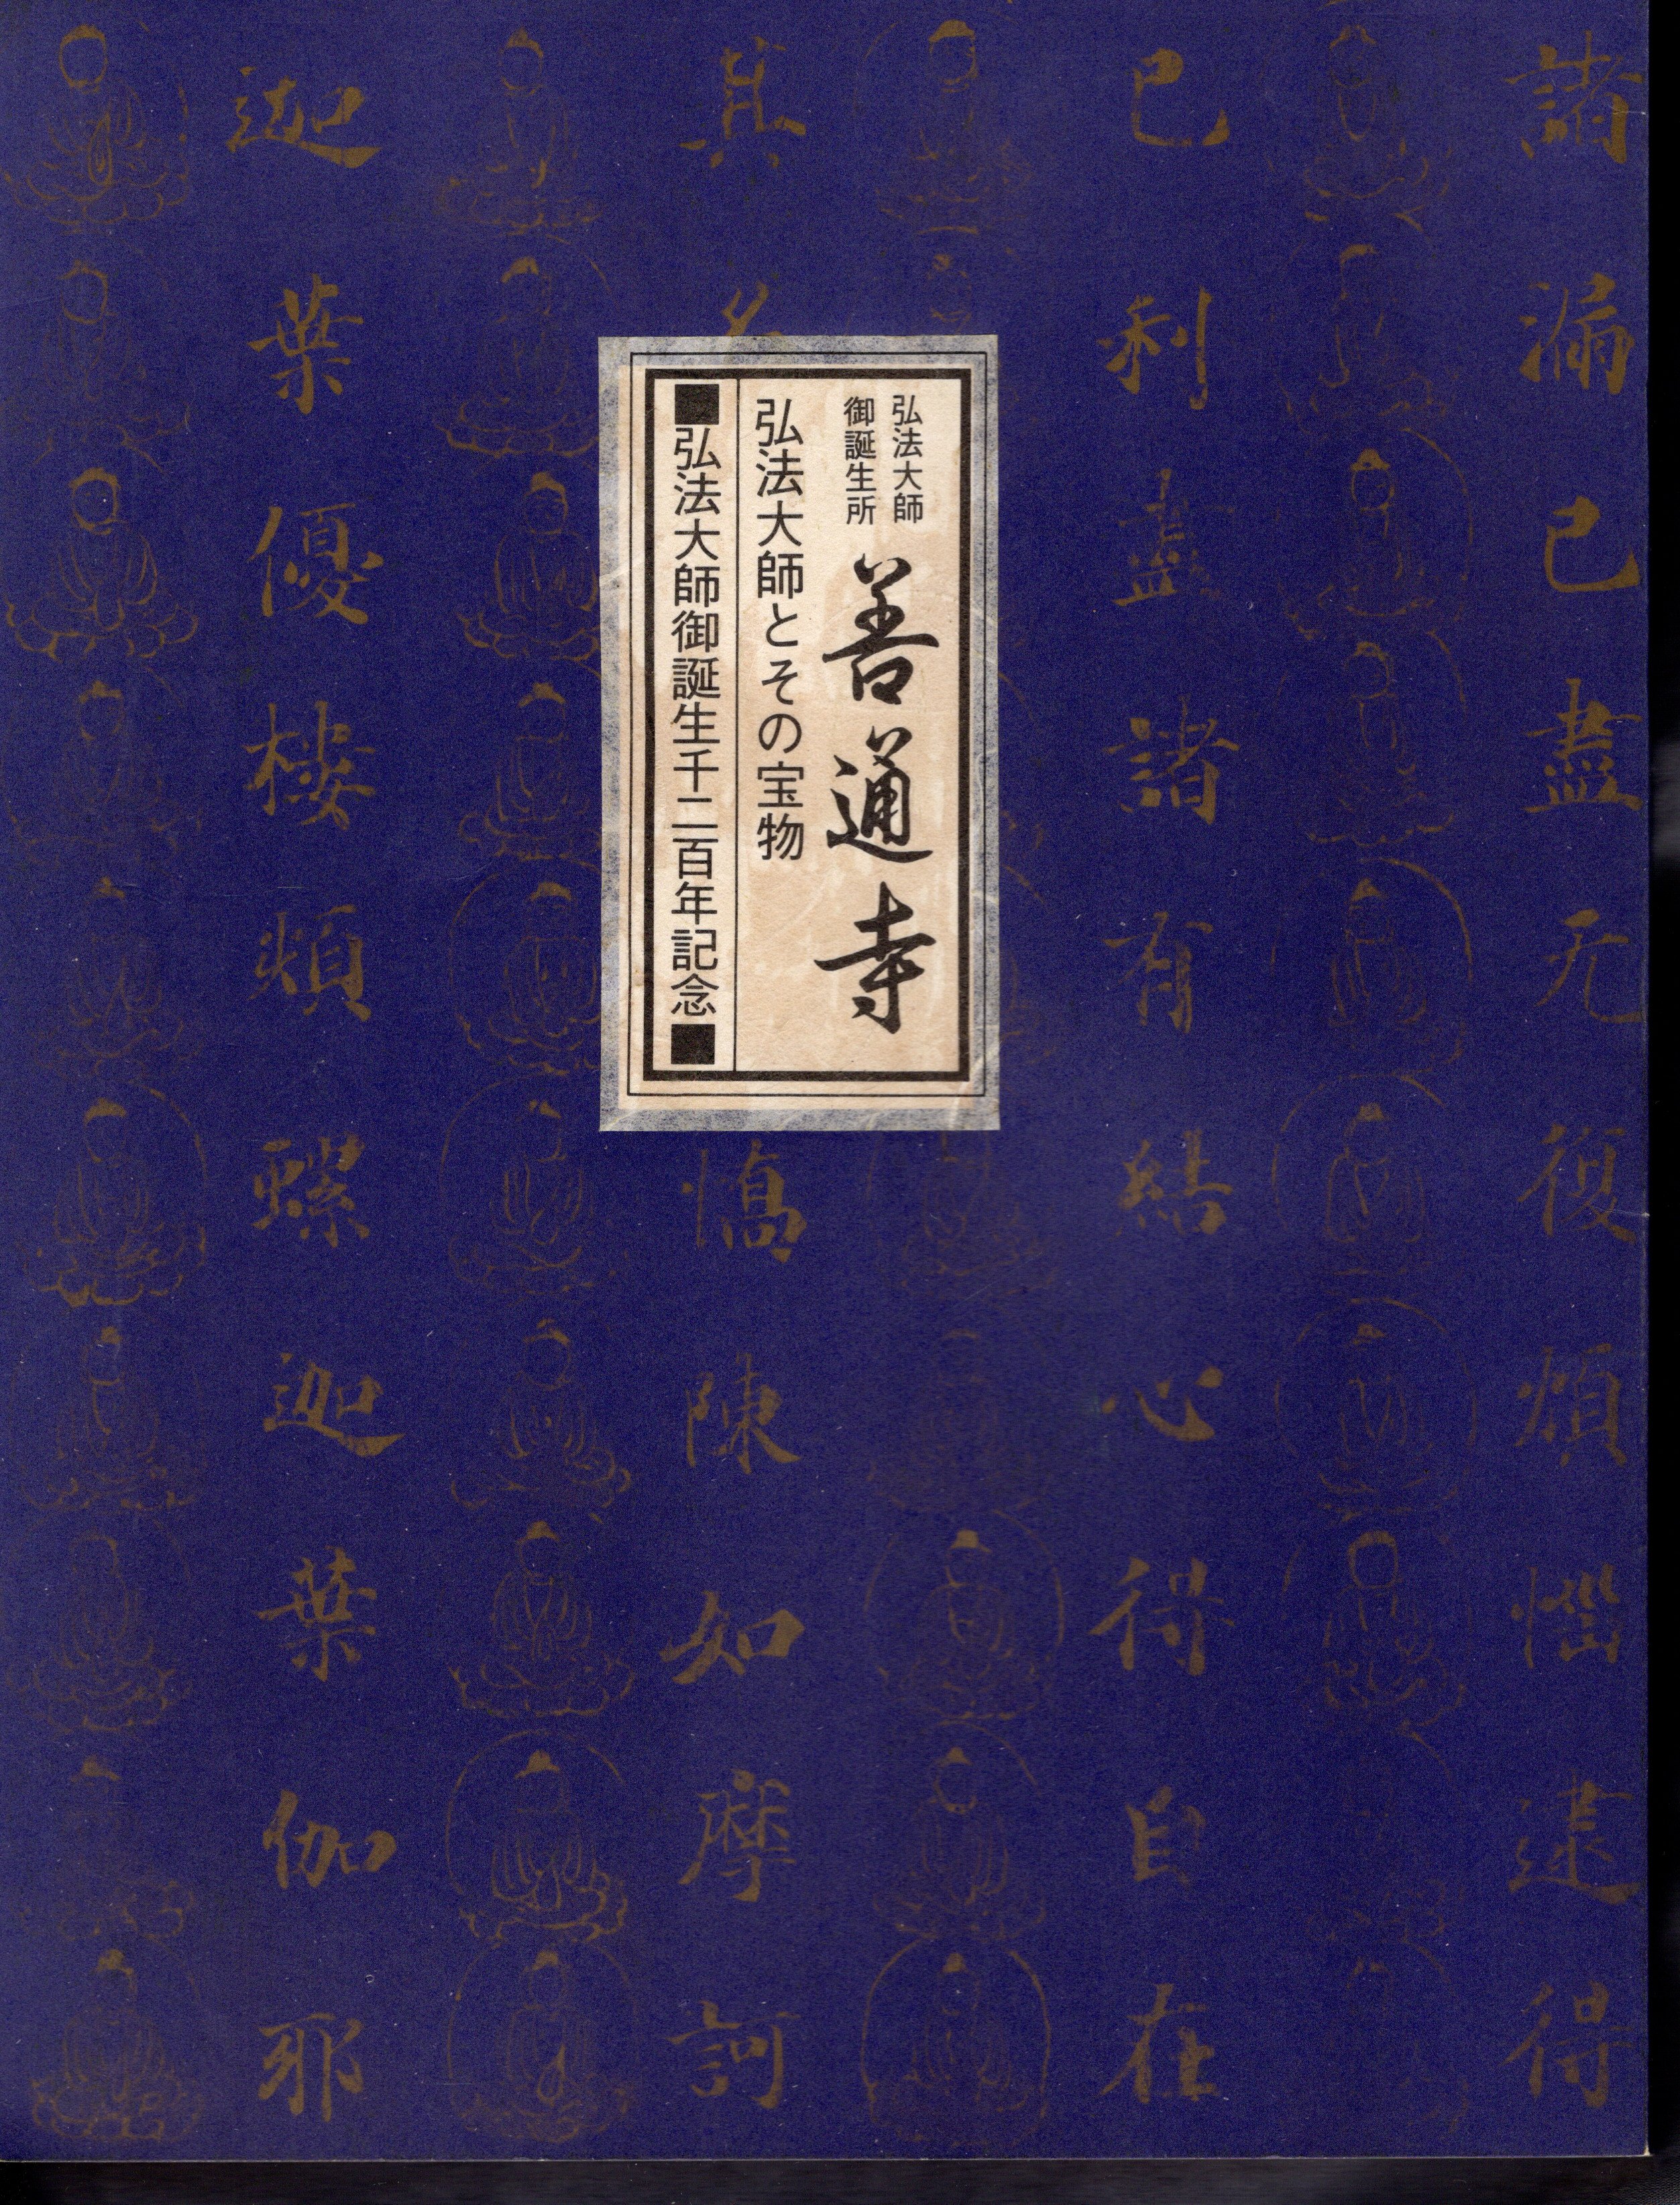 諸漏已盡无復煩惱逮得
己利盡諸有結心得自在
其名
憍陳如摩訶
迦葉優樓頻螺迦葉伽耶
弘法大師
御誕生所
善通寺
弘法大師とその宝物
■弘法大師御誕生千二百年記念■